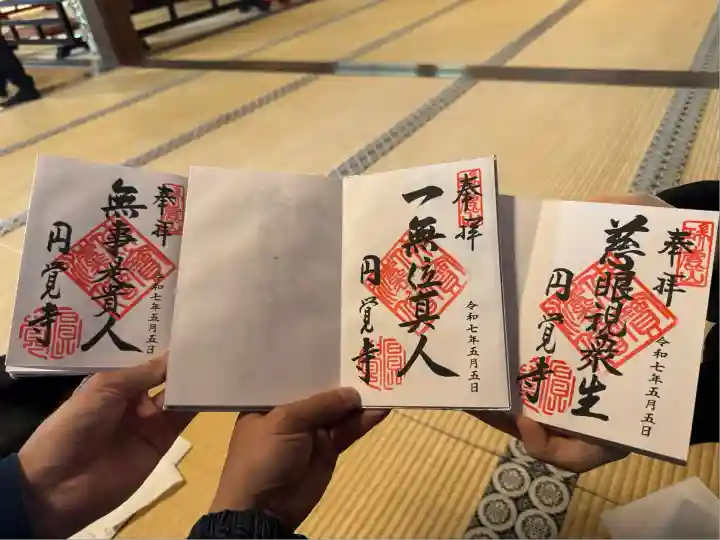 奉拝
無事是貴人
円覚寺
令和七年五月五日
奉拝
一無位真人
円覚寺
令和七年五月五日
奉拝
慈眼視衆生
円覚寺
令和七年五月五日